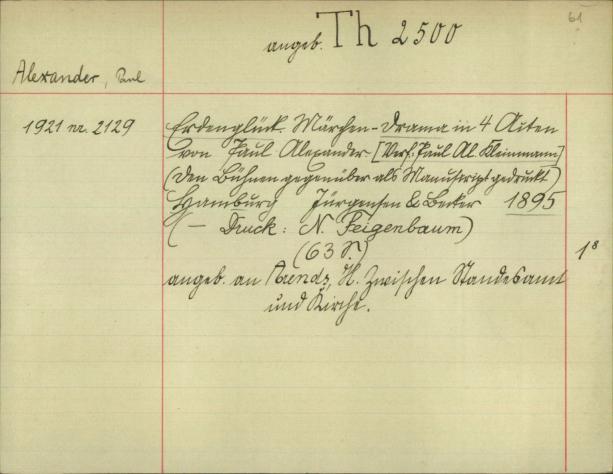 61
angeb. Th 2500
Alexander, Paul
1921 nr. 2129
Erdenglück. Märchen-Drama in 4 Acten
von Paul Alexander [Verf: Paul Al. Kleinmann]
(Den Bühnen gegenüber als Manuskript gedruckt)
Hamburg Jürgensen & Becker 1895
(— Druck: N. Feigenbaum)
(63 S.)
1 8
angeb. an Arends, H. Zwischen Standesamt
und Kirche.